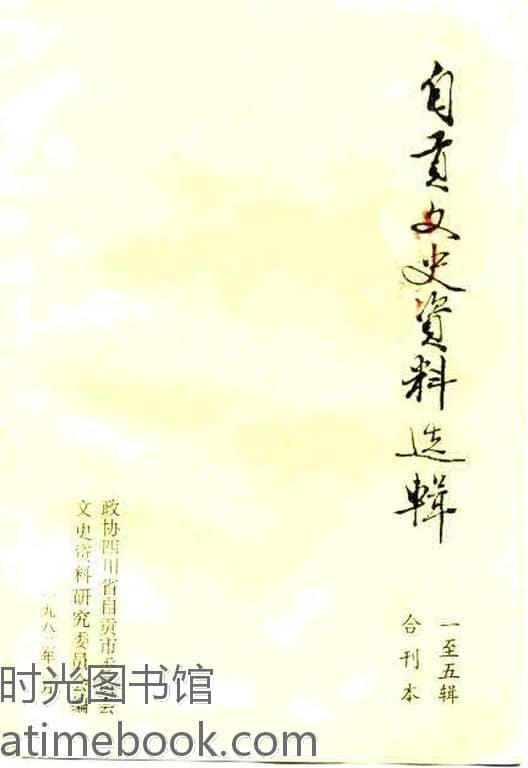 自贡文史資料选輯
一至五辑
合刊本
政协四川省自贡市委员会
文史资料研究委员会编
一九八
时光图书馆
atimebook.com